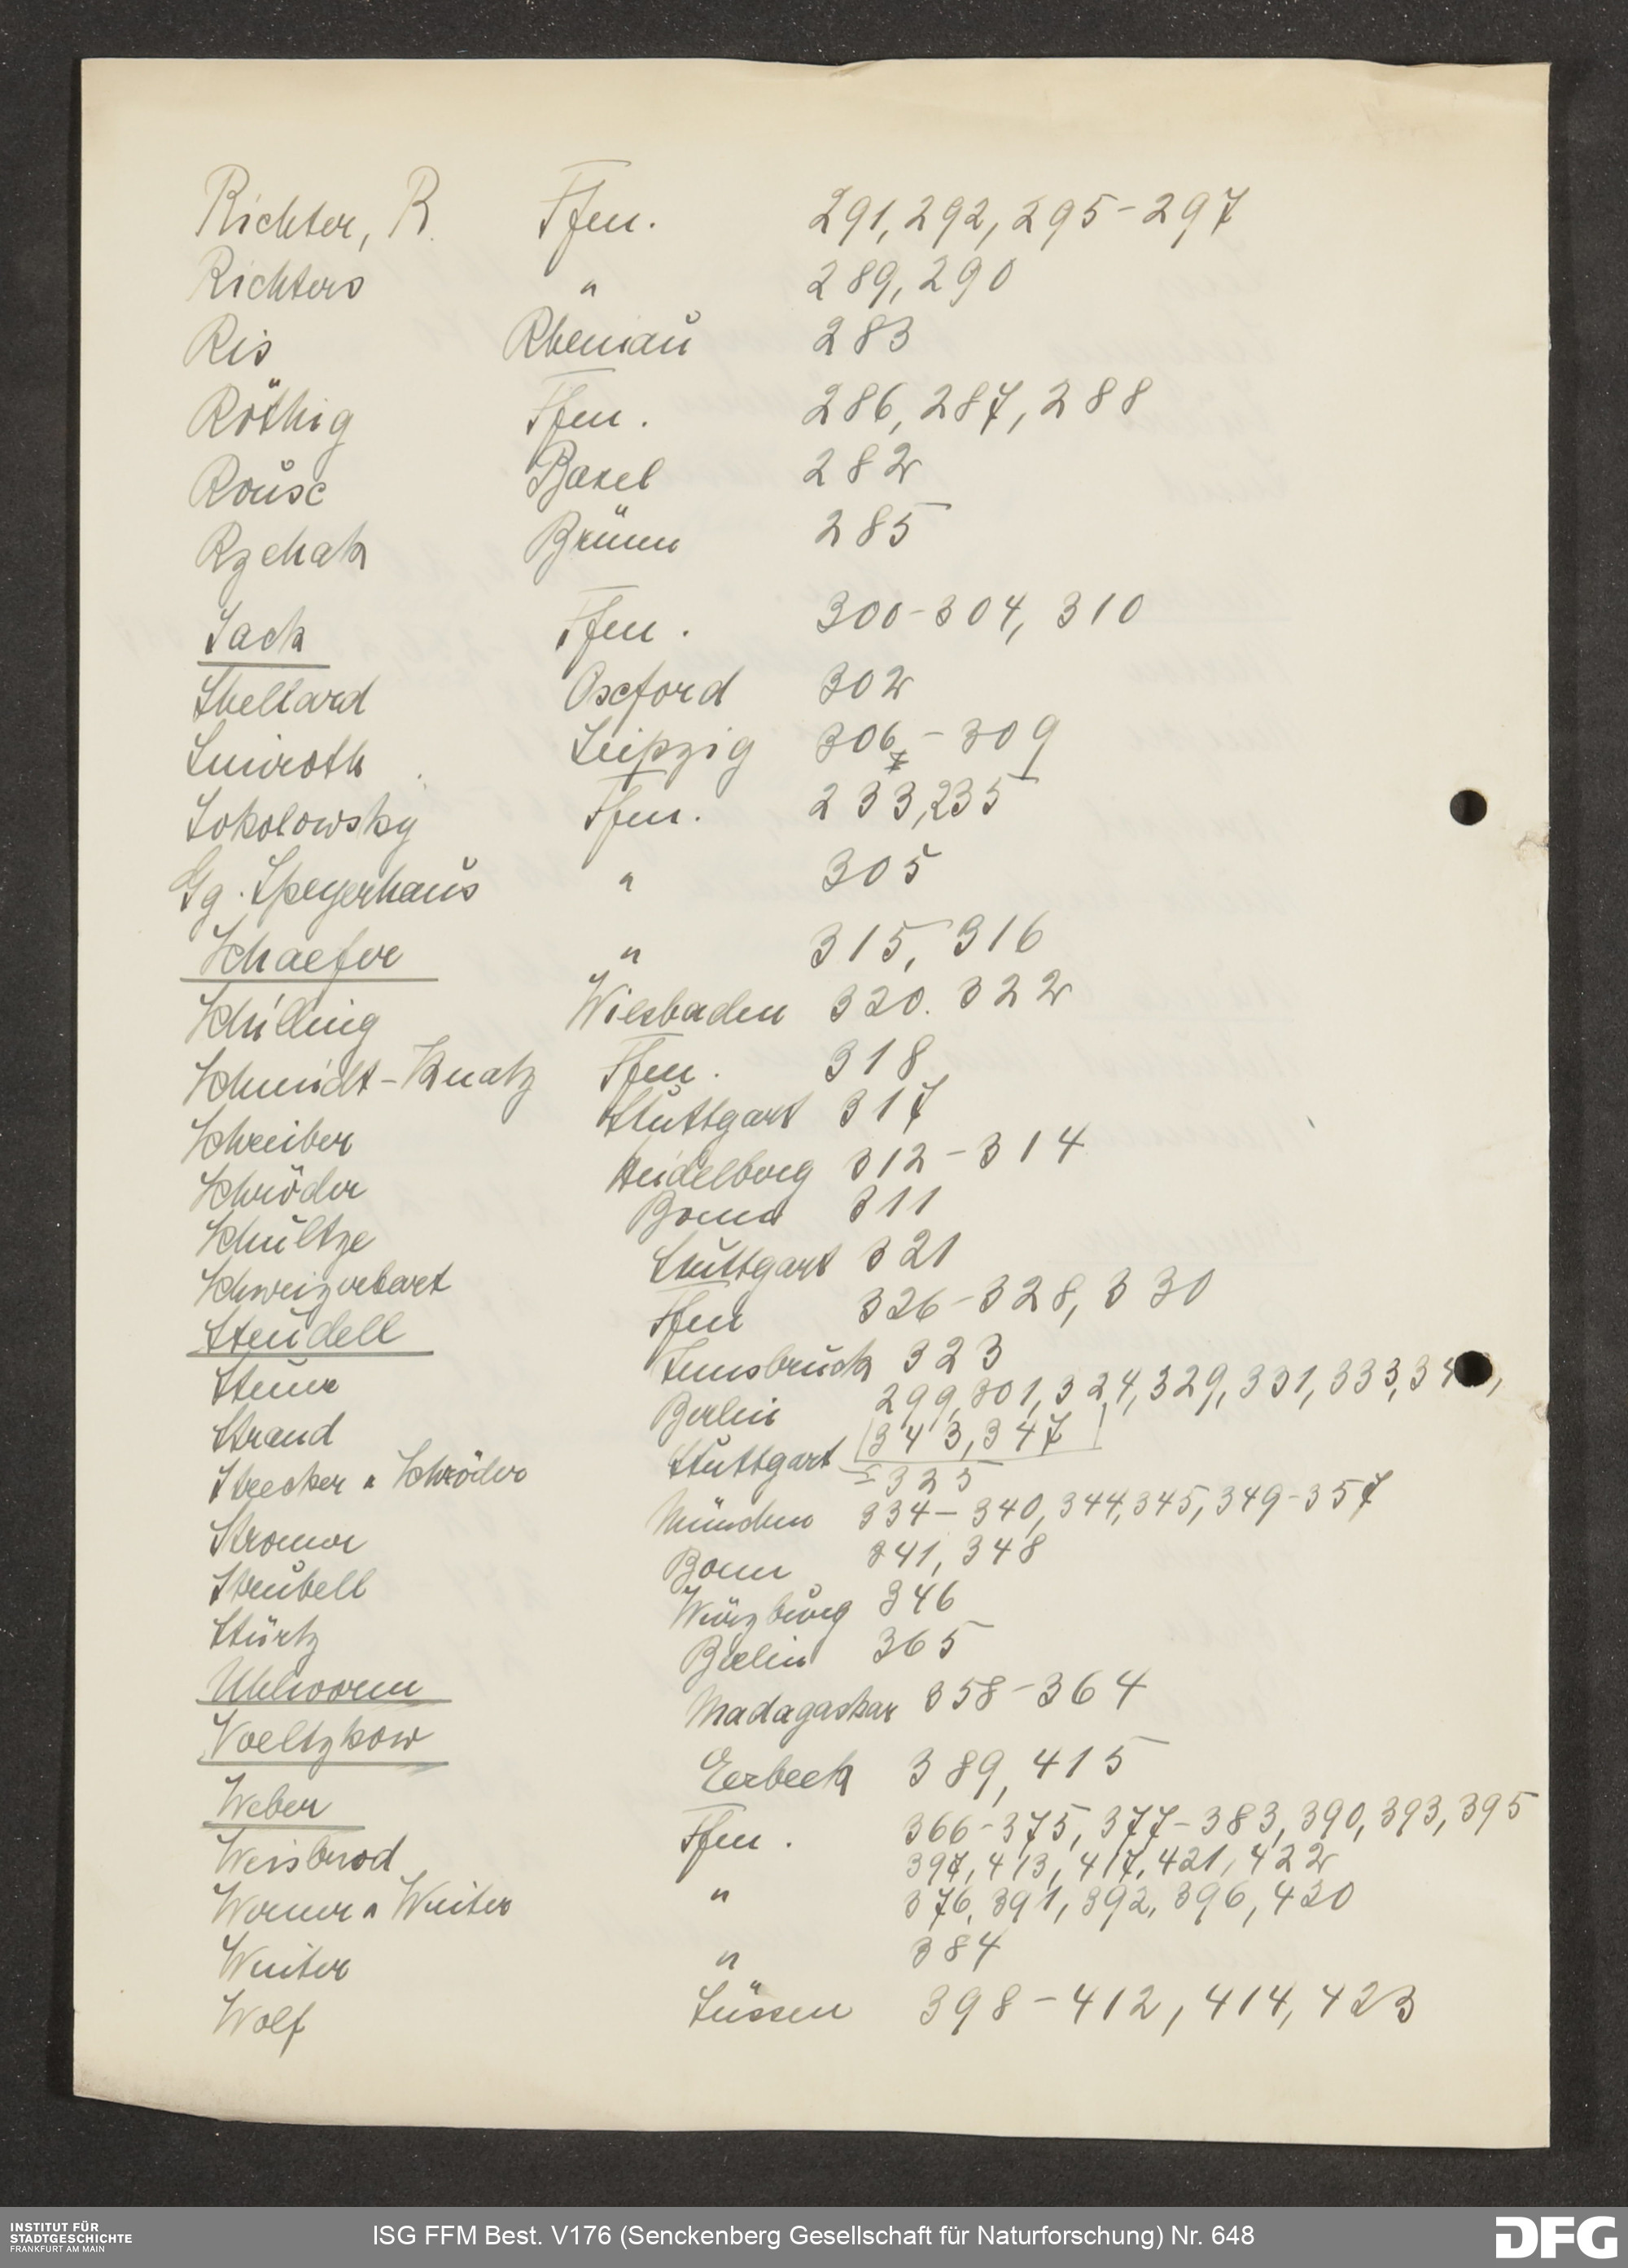 Richter, R. Ffm. 291, 292, 295-297
Richters " 289, 290
Ris Rheinau 283
Röthig Ffm. 286, 287, 288
Basel 282
Rzehak Brünn 285
Sack Ffm. 300-304, 310
Shellard Oxford 302
Simroth Leipzig 306 - 309
Sokolowsky Ffm. 233, 235
Gg. Speyerhaus " 305
Schaefer " 315, 316
Schilling Wiesbaden 320. 322
Schmidt-Knatz Ffm. 318
Schreiber Stuttgart 317
Schröder Heidelberg 312-314
Schultze Bonn 311
Schweizerbart Stuttgart 321
Steudell Ffm 326-328, 330
Innsbruck 323
Strand Berlin 299, 301, 324, 329, 331, 333,
343, 347
Strecker u Schröder Stuttgart 325
Stromer München 334-340, 344, 345, 349-357
Strubell Bonn 341, 348
Stürtz Würzburg 346
Uhlworm Berlin 365
Voeltzkow Madagaskar 358-364
Weber Eerbeek 389, 415
Weisbrod Ffm. 366-375, 377-383, 390, 393, 395
397, 413, 417, 421, 422
Werner u Winter " 376, 391, 392, 396, 420
Winter " 384
Wolf Lüssen 398-412, 414, 423
INSTITUT FÜR
STADTGESCHICHTE
FRANKFURT AM MAIN
ISG FFM Best. V176 (Senckenberg Gesellschaft für Naturforschung) Nr. 648
DFG